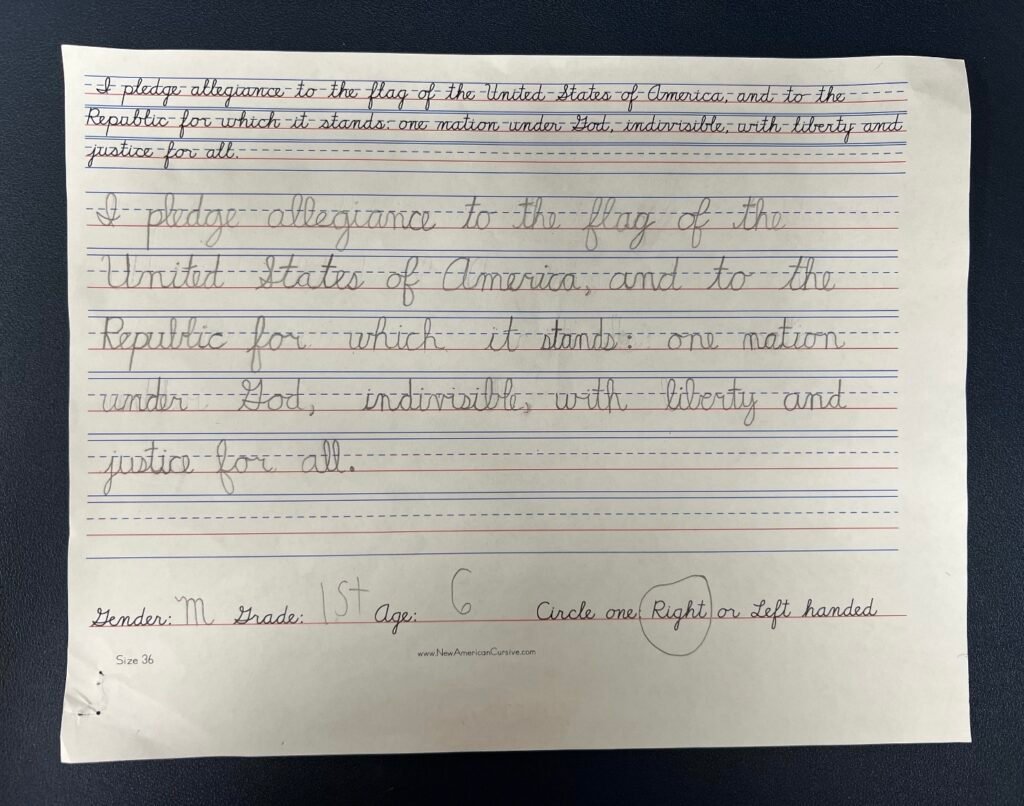 I pledge allegiance to the flag of the United States of America, and to the
Republic for which it stands: one nation under God, indivisible, with liberty and
justice for all.
I pledge allegiance to the flag of the
United States of America, and to the
Republic for which it stands: one nation
under God, indivisible, with liberty and
justice for all.
Gender: M Grade: 1st Age: 6 Circle one: Right or Left handed
Size 36 www.NewAmericanCursive.com